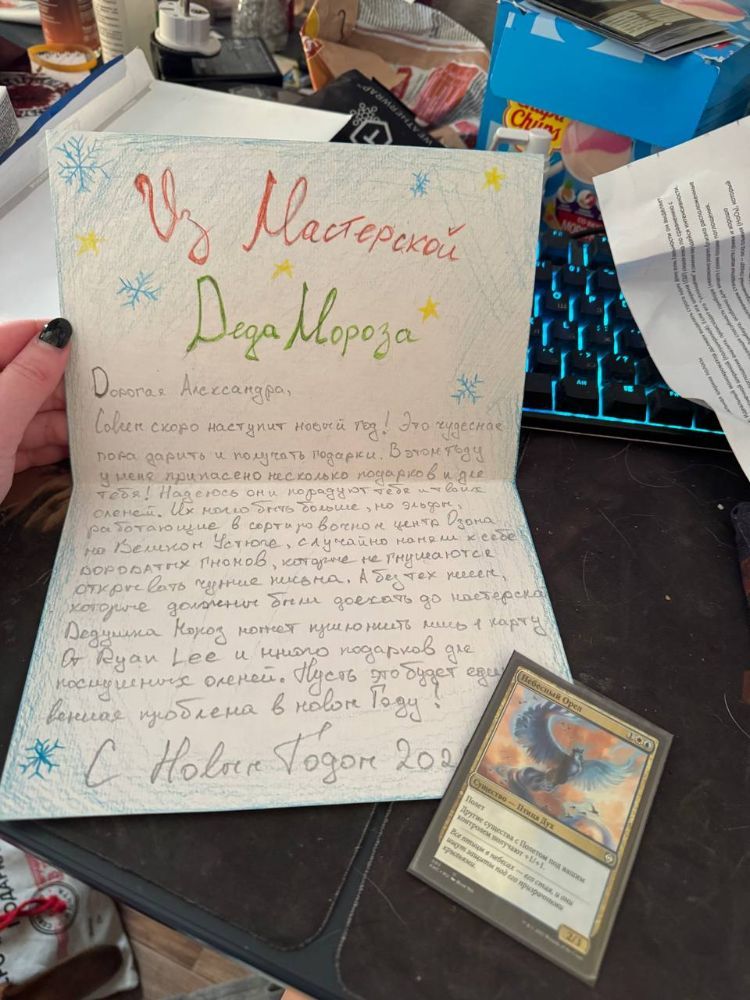 Из Мастерской
Деда Мороза
Дорогая Александра,
Совсем скоро наступит новый год! Это чудесная
пора дарить и получать подарки. В этом году
у меня припасено несколько подарков и для
тебя! Надеюсь они порадуют тебя и твоих
оленей. Их могло быть больше, но эльфы,
работающие в сортировочном центр Озона
на Великом Устюге, случайно наняли к себе
бородатых гномов, которые не гнушаются
открывать чужие письма. А без тех писем,
которые должны были доехать до мастерской
Дедушка Мороз может приложить лишь 1 карту
От Ryan Lee и много подарков для
послушных оленей. Пусть это будет един
венная проблема в новом Году!
С Новым Годом 202
Небесный Орел
1
Существо — Птица Дух
Полет
Другие существа с Полетом под вашим
контролем получают +1/+1.
Все птицы в небесах — его стая, и они
ищут защиты под его призрачными
крыльями.
2/3
Chupa
Chups
WEATHERWRAP